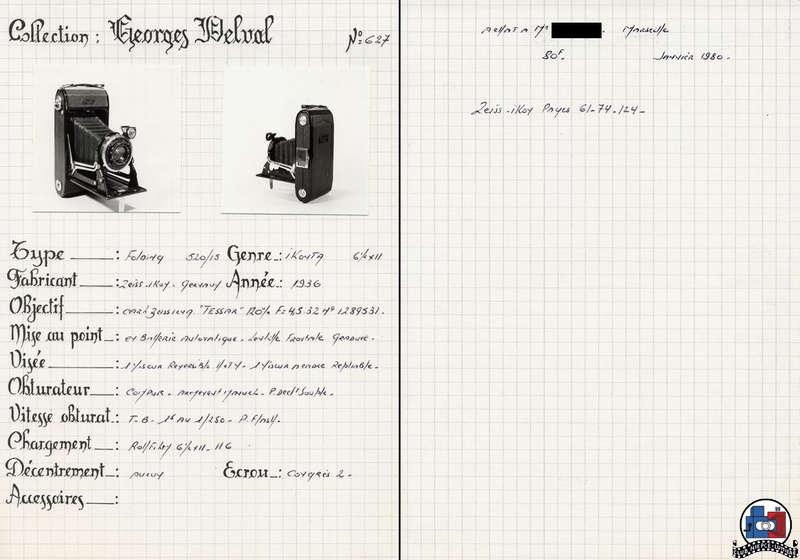 Collection : Georges Delval N° 627
Type : Folding 520/15 Genre : iKonTA 6½x11
Fabricant : Zeiss-iKoy. Germany Année : 1936
Objectif : Carl Zeiss iena. "TESSAR" 120%. F=4,5. 32. N° 1289531.
Mise au point : et Batterie Automatique. Lentille Frontale Graduée.
Visée : 1 Viseur Reversible H et V. 1 Viseur Repliable.
Obturateur : Compur. P. Decl' Souple.
Vitesse obturat : T. B. 1s Au 1/250 - P. Flash.
Chargement : Roll Film 6½x11. 116
Décentrement :
Ecrou : Congrès 2.
Accessoires :
Marseille
80F. Janvier 1980.
Zeiss-iKoy Pages 61-74-124.